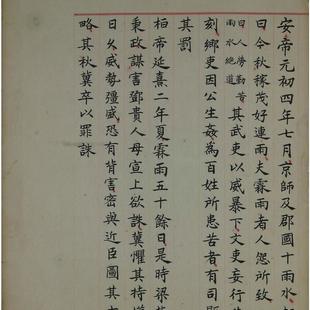 安帝元初四年七月京師及郡國十雨水
曰令秋稼茂好連雨夫霖雨者人怨所致
雨水絶道
其武吏以威暴下文吏妄行
刻鄉吏因公生姦為百姓所患苦者有司
其罰
桓帝延熹二年夏霖雨五十餘日是時梁
秉政謀害鄧貴人母宣上欲誅冀懼其持
日久威勢彊威恐有背害密與近臣圖其
略其秋冀卒以罪誅